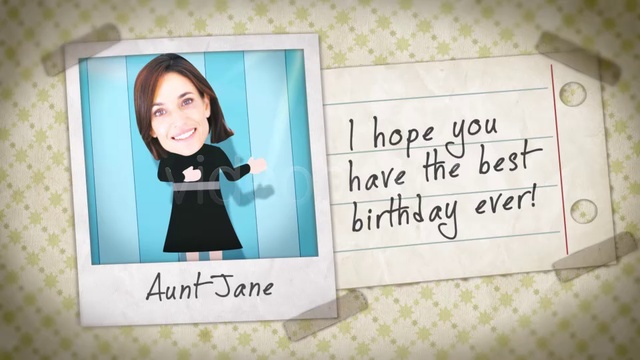 Aunt Jane
I hope you
have the best
birthday ever!